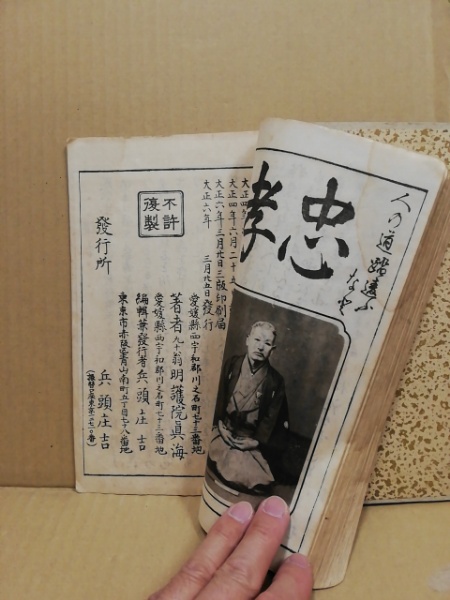 人の道踏違ふ
なよ
忠孝
大正四年六月二十五
大正六年三月廿日三版印刷届
大正六年三月廿五日發行
不許
複製
愛媛縣西宇和郡川之石町七十三番地
著者九十翁明護院眞海
愛媛縣西宇和郡川之石町七十三番地
編輯兼發行者兵頭庄吉
東京市赤阪區青山南町五丁目七十八番地
發行所 兵頭庄吉